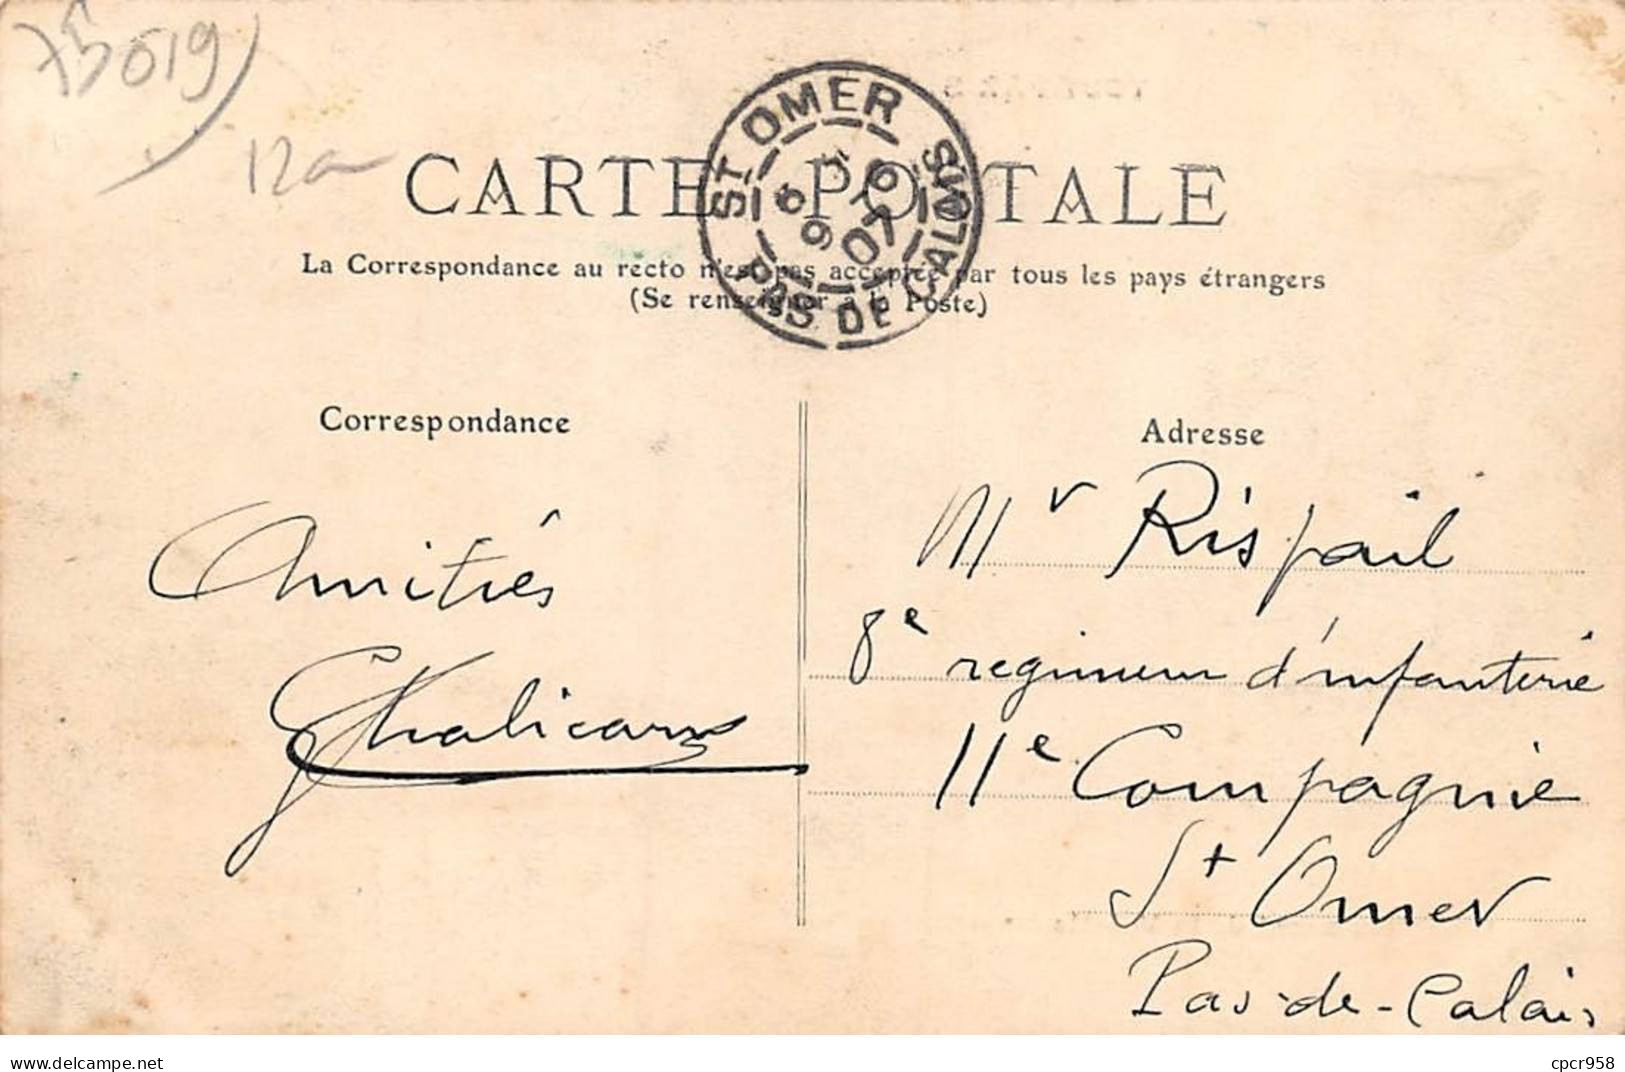 75019
12
ST OMER
PAS DE CALAIS
07
CARTE POSTALE
La Correspondance au recto n'est pas acceptée par tous les pays étrangers
(Se renseigner à la Poste)
Correspondance
Adresse
Amitiés
Mr Rispail
8e regiment d'infanterie
11e Compagnie
St Omer
Pas-de-Calais
cpcr958